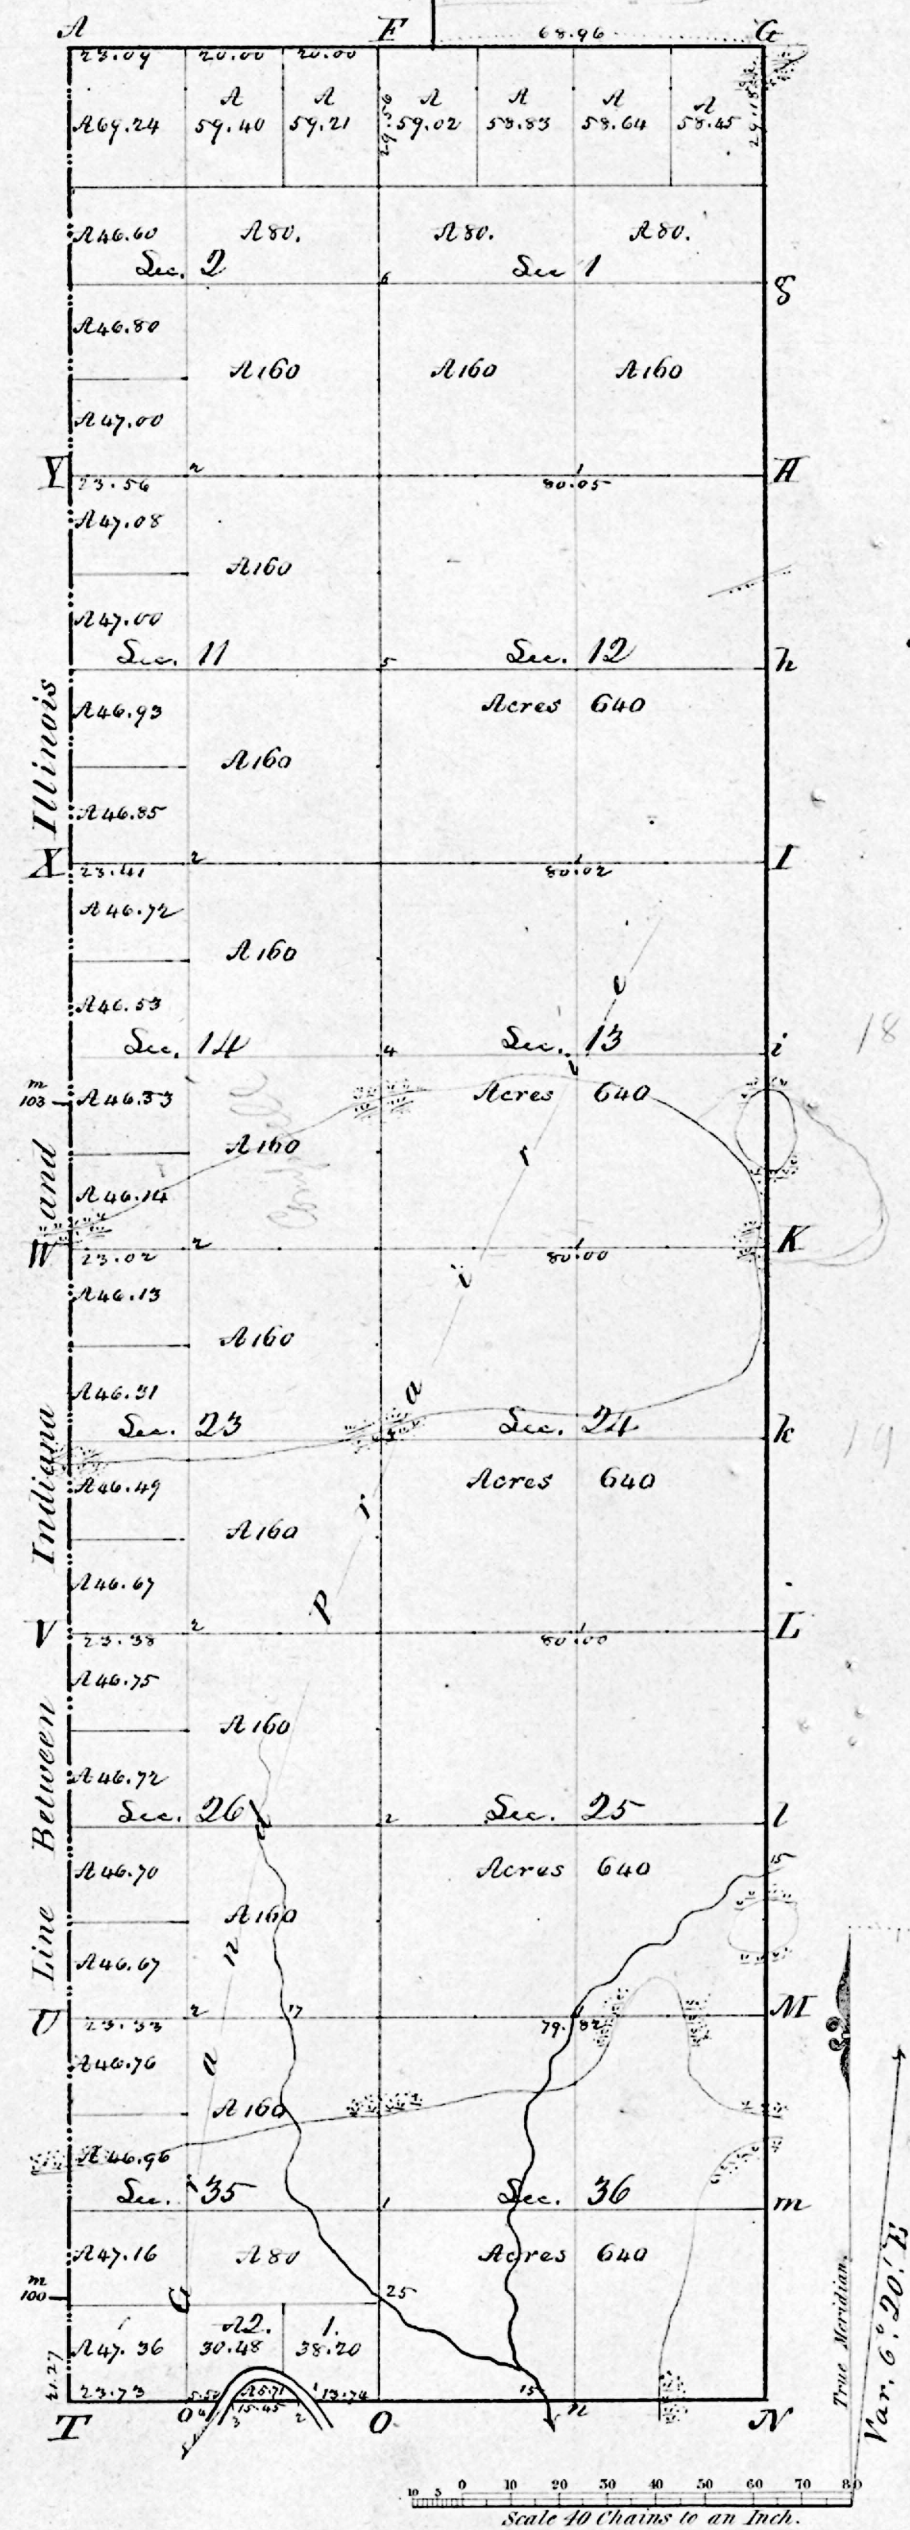 A F 68.96 G
23.09 20.00 20.00
A A A A A
A69.24 59.40 59.21 29.56 59.02 58.83 58.64 58.45
A46.60 A80. A80. A80.
Sec. 2 6 Sec 1 g
A46.80
A160 A160 A160
A47.00
Y 2 1 H
23.56 80.05
A47.08
A160
A47.00
Sec. 11 5 Sec. 12 h
A46.93 Acres 640
A160
A46.85
X 2 1 I
23.41 80.02
A46.72
A160
A46.53
Sec. 14 4 Sec. 13 i
18
m
103 A46.33 Acres 640
A160
A46.14
W 2 1 K
23.02 80.00
A46.13
A160
A46.31
Sec. 23 3 Sec. 24 k
19
A46.49 Acres 640
A160
A46.67
V 2 1 L
23.38 80.00
A46.75
A160
A46.72
Sec. 26 2 Sec. 25 l
A46.70 Acres 640 15
A160
A46.67
U 2 17 M
23.33 79.82
A46.76
A160
A46.96
Sec. 35 1 Sec. 36 m
A47.16 A80 Acres 640
m
100 25
A2. 1.
A47.36 30.48 38.20
21.27
23.73 13.74 15
15.45
3 2
T O n N
Line Between Indiana and Illinois
Grand Prairie
True Meridian.
Var. 6° 20.' E
10 5 0 10 20 30 40 50 60 70 80
Scale 40 Chains to an Inch.